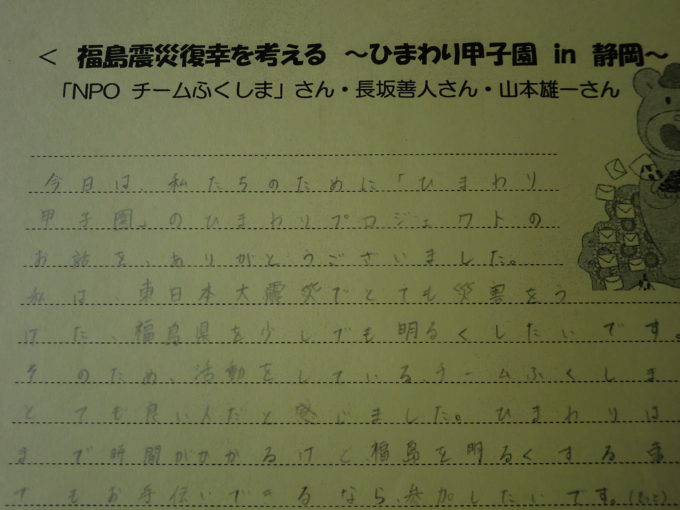 < 福島震災復幸を考える ～ひまわり甲子園 in 静岡～
「NPO チームふくしま」さん・長坂善人さん・山本雄一さん
今日は、私たちのために「ひまわり
甲子園」のひまわりプロジェクトの
お話を、ありがとうございました。
私は、東日本大震災でとても災害をう
けた、福島県を少しでも明るくしたいです。
そのため、活動をしている、チームふくしま
とても良い人だと感じました。ひまわりは
まで時間がかかるけど、福島を明るくする
でもお手伝いできるなら、参加したいです。